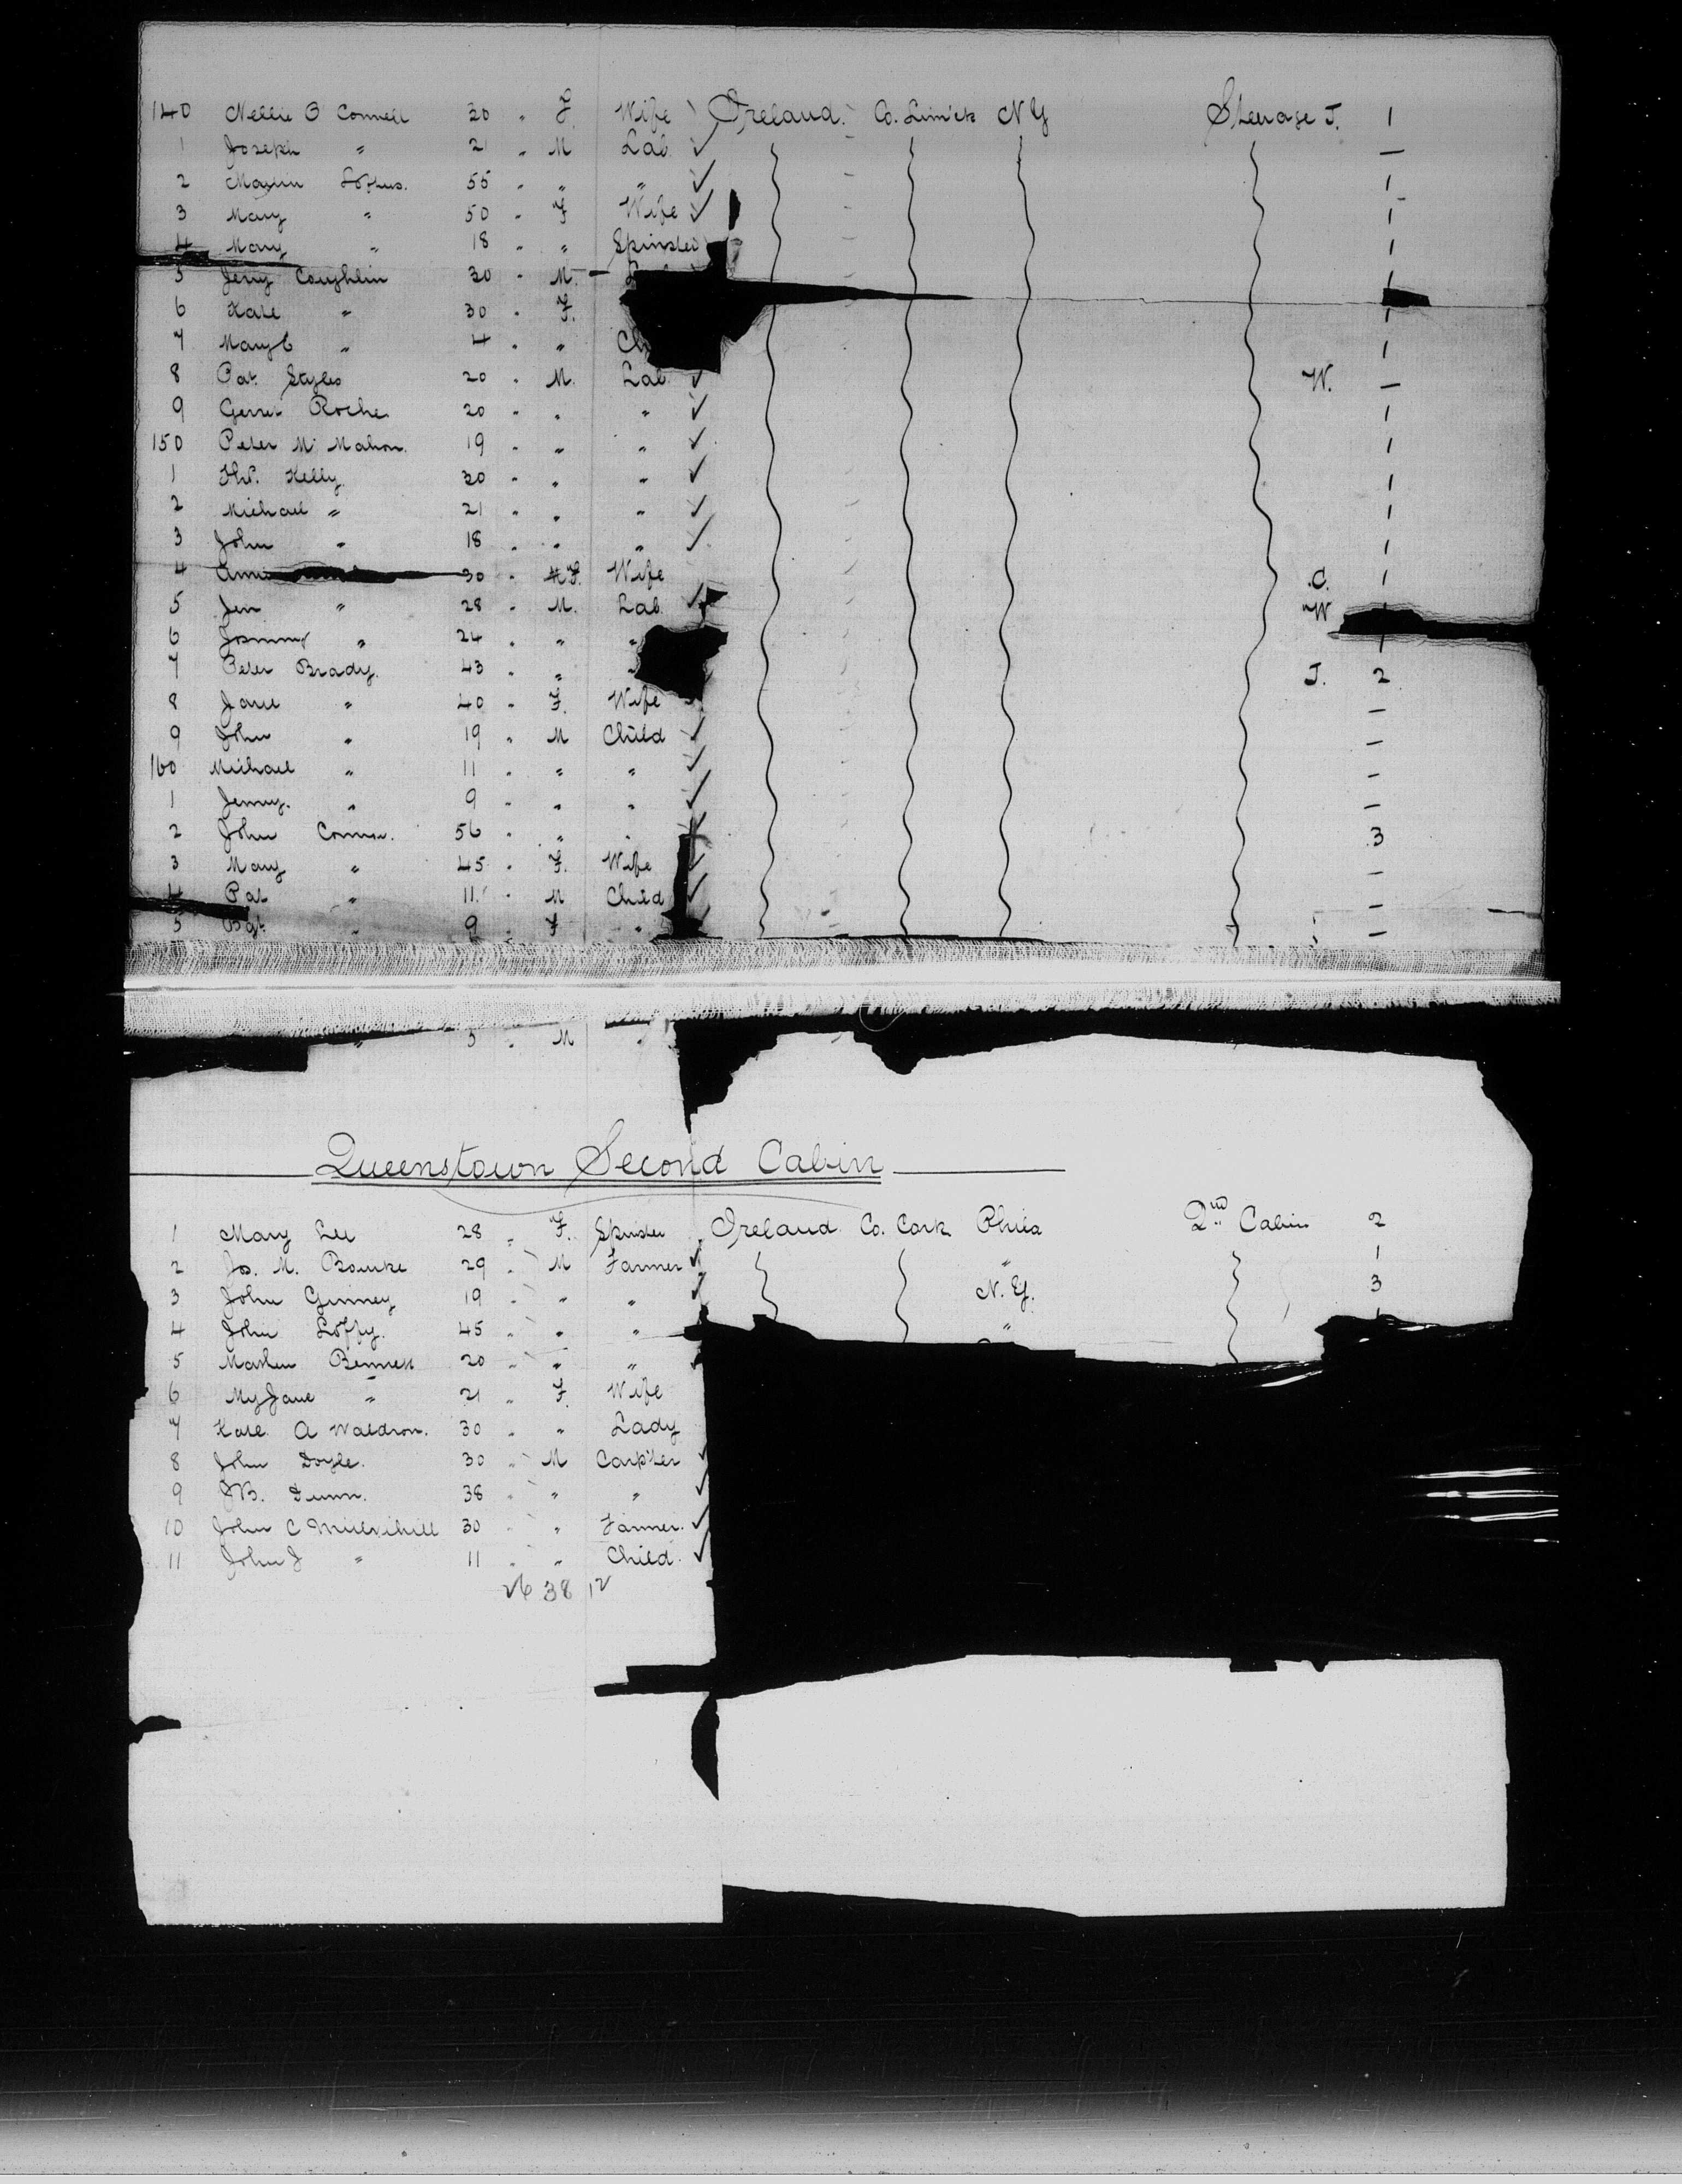 140 Nellie O Connell 20 " F. Wife Ireland. Co. Lim'ck N Y Steerage J. 1
1 Joseph " 21 " M Lab. ✓ —
2 Loftus. 55 " " " ✓ 1
3 Mary " 50 " F Wife ✓ 1
4 Mary " 18 " " Spinster 1
5 Jerry Coughlin 30 " M. 1
6 Kate " 30 " F. 1
7 " 4 " " Ch 1
8 Pat. Styles 20 " M. Lab. ✓ W. —
9 Roche 20 " " " ✓ 1
150 Peter Mc Mahon. 19 " " " ✓ 1
1 Kelly 30 " " " ✓ 1
2 Michael " 21 " " " ✓ 1
3 John " 18 " " " ✓ 1
4 Annie 30 " F. Wife C. 1
5 " 28 " M. Lab. ✓ W 1
6 " 24 " " " 1
7 Peter Brady. 43 " " J. 2
8 Jane " 40 " F. Wife —
9 John " 19 " M Child ✓ —
160 Michael " 11 " " " ✓ —
1 Jenny. " 9 " " " ✓ —
2 John 56 " " " ✓ 3
3 Mary " 45 " F. Wife ✓ —
4 Pat " 11 " M Child ✓ —
5 Bgt. " 9 " F " —
" 3 " M "
Queenstown Second Cabin
1 Mary Lee 28 " F. Spinster Ireland Co. Cork Phila 2nd Cabin 2
2 Jos. M. Bourke 29 " M Farmer ✓ " 1
3 John 19 " " " ✓ N. Y. 3
4 John 45 " " " "
5 Bennett 20 " " " ✓
6 My Jane " 21 " F. Wife
7 Kate A Waldron. 30 " " Lady
8 John Doyle. 30 " M Carp'ter ✓
9 J B. Dunn. 38 " " " ✓
10 John C Mulvihill 30 " " Farmer. ✓
11 John J " 11 " " Child. ✓
26 38 12